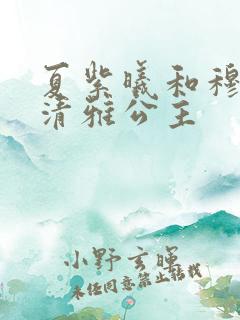 夏紫曦和穆
清雅公主
小野玄晖
未经同意禁止转载